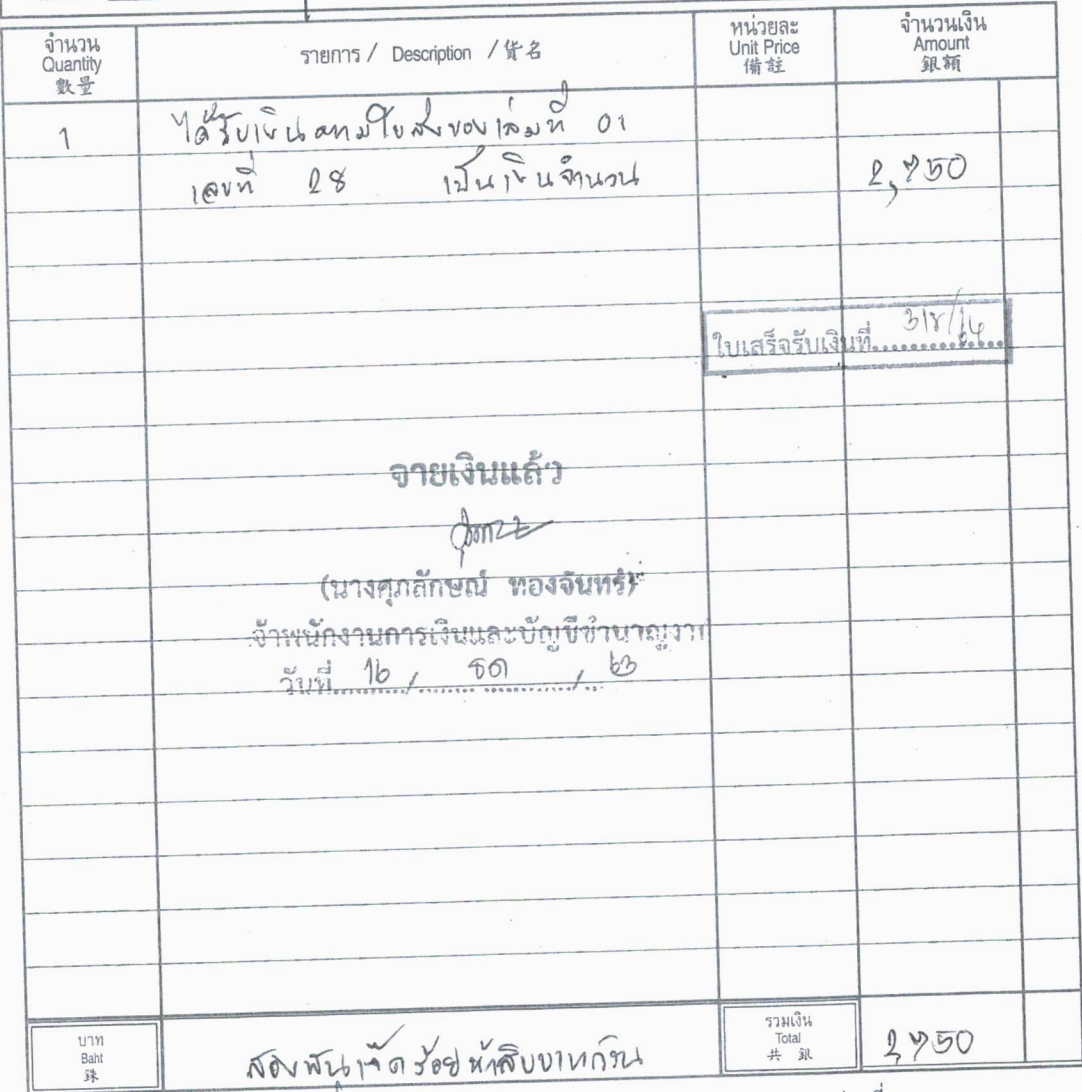 จำนวน
Quantity
數量
รายการ / Description / 貨名
หน่วยละ
Unit Price
備註
จำนวนเงิน
Amount
銀額
1 ได้รับเงินตามใบส่งของเล่มที่ 01
เลขที่ 28 เป็นเงินจำนวน 2,750
ใบเสร็จรับเงินที่ 318/14
จ่ายเงินแล้ว
(นางศุภลักษณ์ ทองจันทร์)
เจ้าพนักงานการเงินและบัญชีชำนาญงาน
วันที่ 16 / ธค / 63
บาท
Baht
銖
สองพันเจ็ดร้อยห้าสิบบาทถ้วน
รวมเงิน
Total
共 銀
2,750